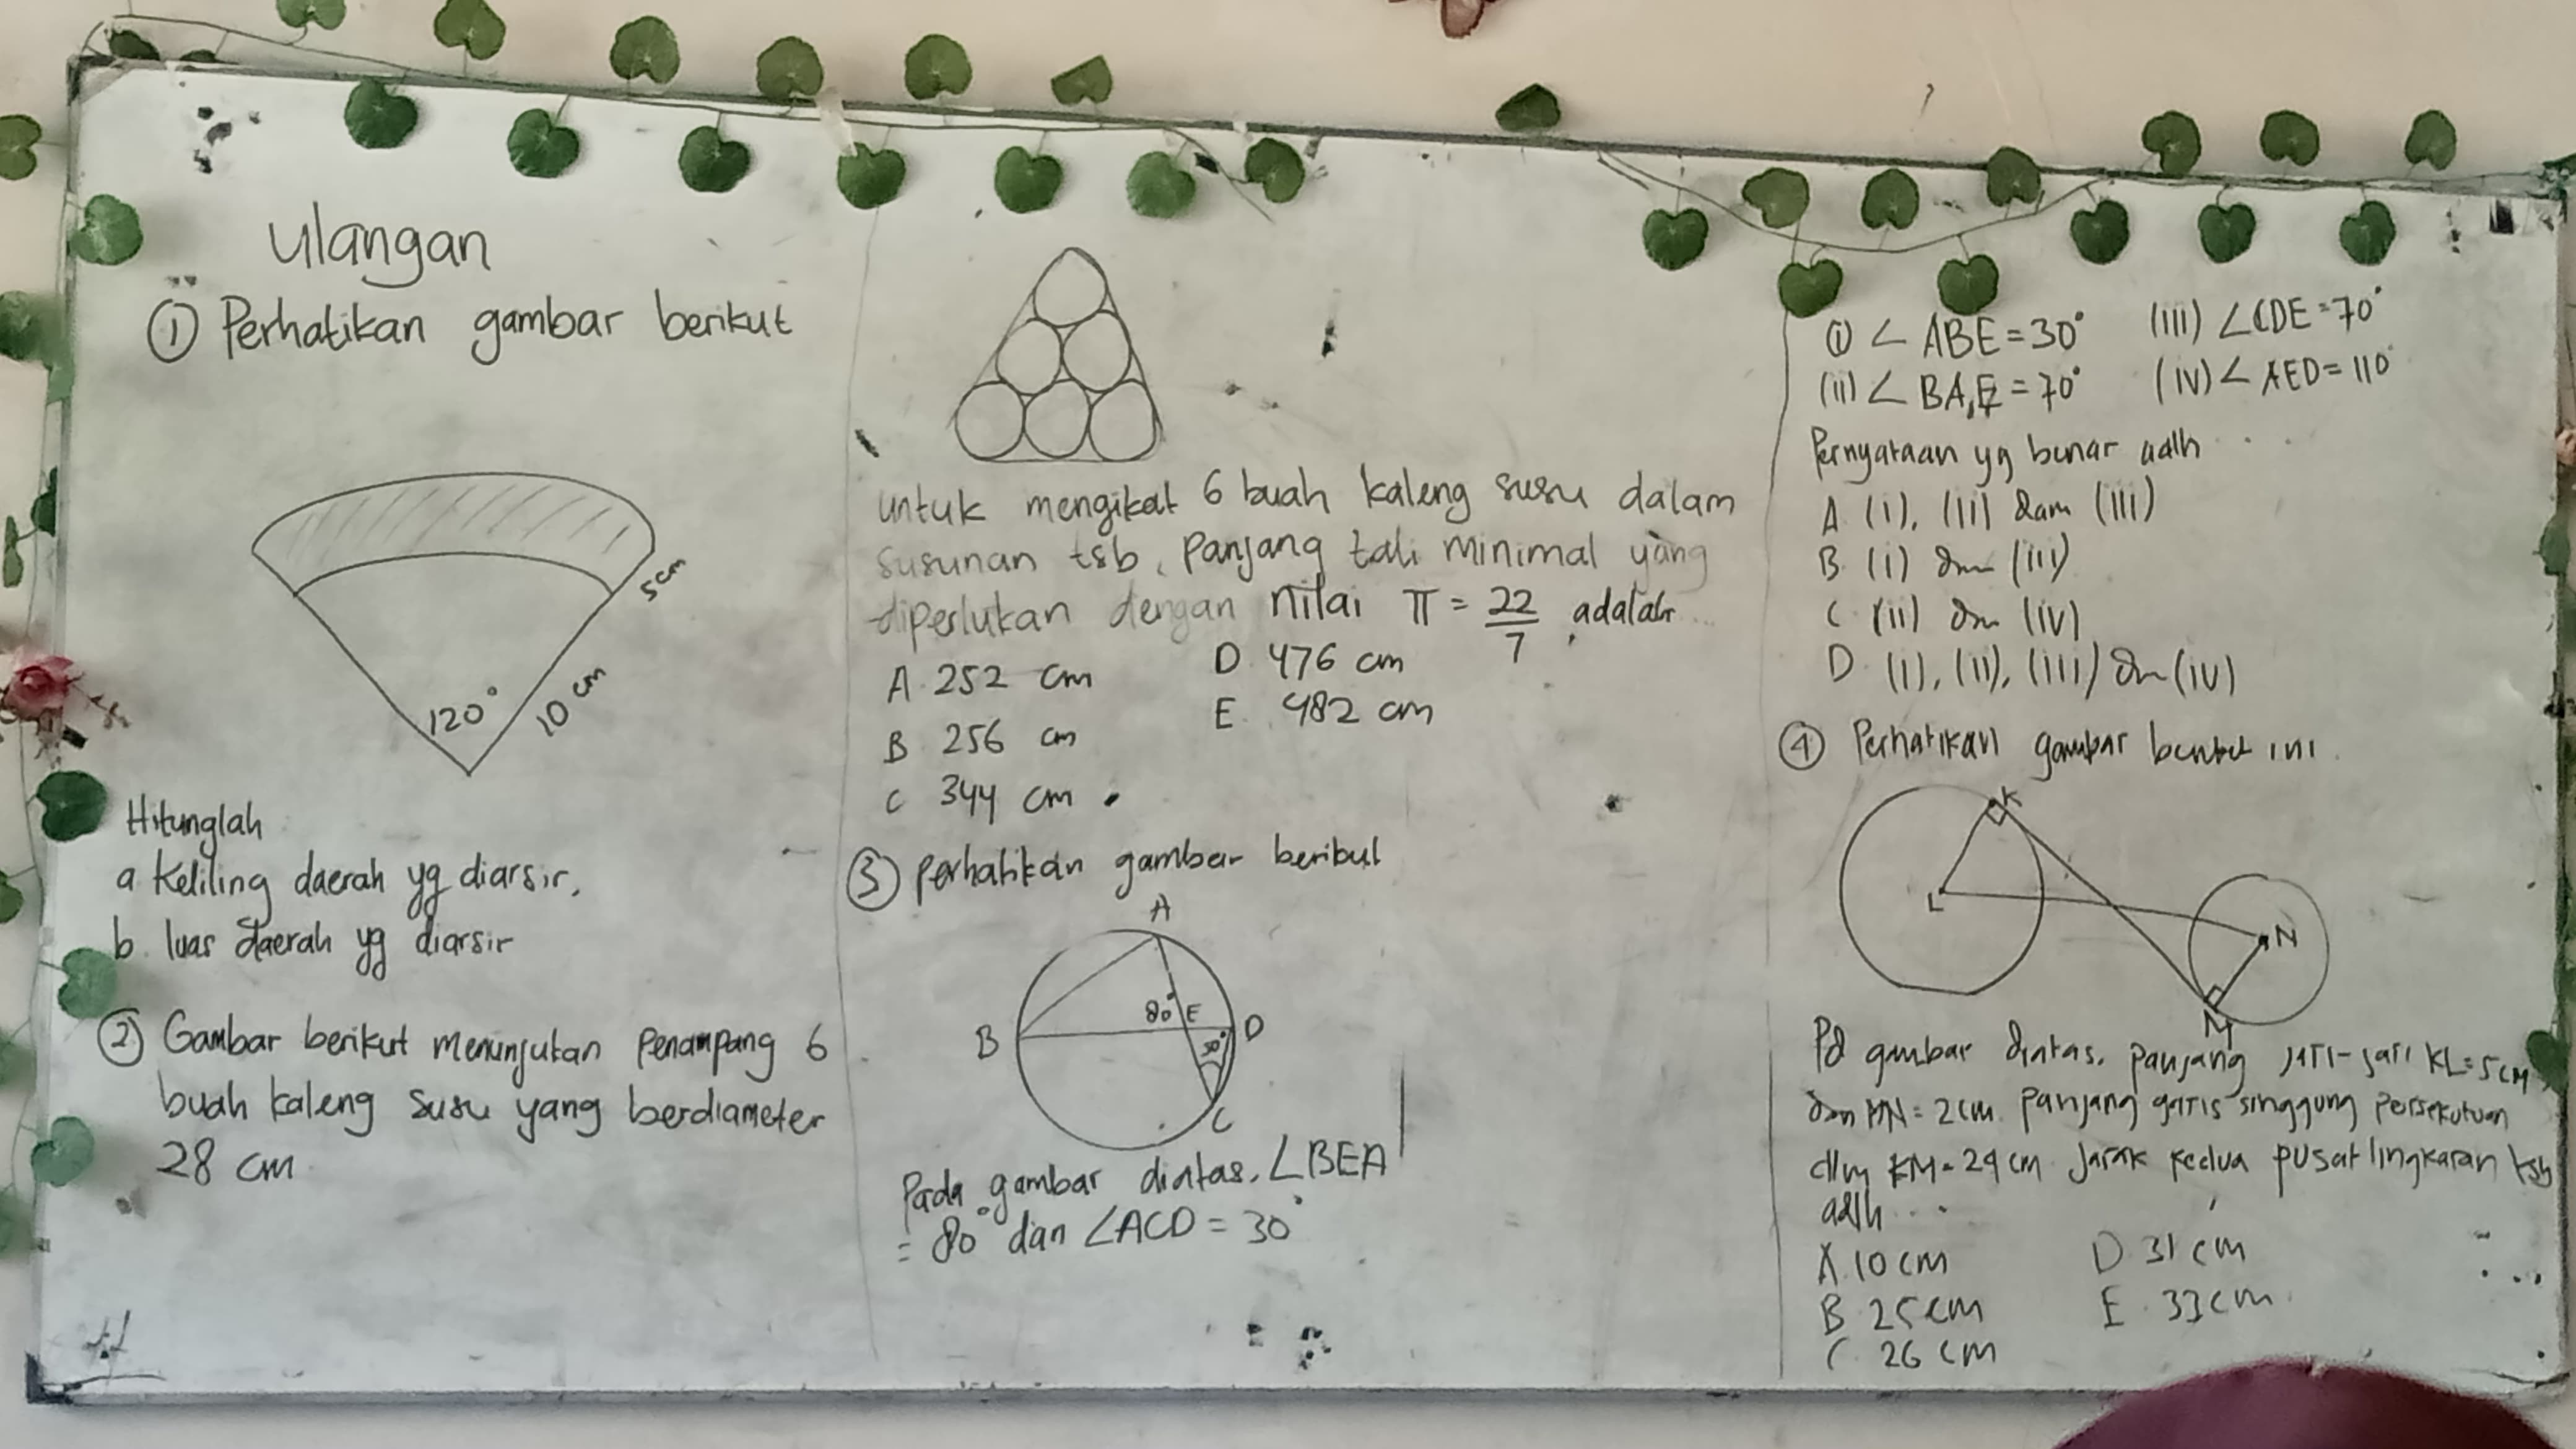 Ulangan
① Perhatikan gambar berikut
5 cm
10 cm
120°
Hitunglah
a. Keliling daerah yg diarsir.
b. luas daerah yg diarsir
② Gambar berikut menunjukan penampang 6
buah kaleng susu yang berdiameter
28 cm
untuk mengikat 6 buah kaleng susu dalam
susunan tsb, panjang tali minimal yang
diperlukan dengan nilai π = 22/7 adalah...
A. 252 cm D. 476 cm
B. 256 cm E. 482 cm
C. 344 cm
③ perhatikan gambar berikut
A
80° E
B D
30°
C
Pada gambar diatas, ∠BEA
= 80° dan ∠ACD = 30°
(i) ∠ ABE = 30° (iii) ∠CDE = 70°
(ii) ∠ BAE = 70° (iv) ∠ AED = 110°
Pernyataan yg benar adlh ...
A. (i), (ii) dan (iii)
B. (i) dan (iii)
C. (ii) dan (iv)
D. (i), (ii), (iii) dan (iv)
④ Perhatikan gambar berikut ini.
K
L
N
M
Pd gambar diatas, panjang jari-jari KL = 5 cm
dan MN = 2 cm. Panjang garis singgung persekutuan
dlm KM = 24 cm. Jarak kedua pusat lingkaran tsb
adlh ...
A. 10 cm D. 31 cm
B. 25 cm E. 33 cm.
C. 26 cm